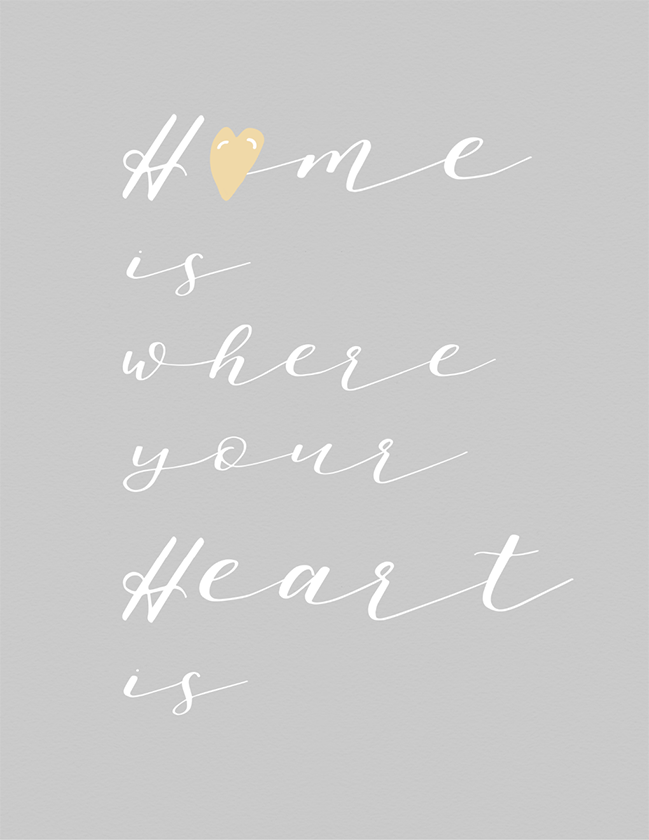 Home
is
where
your
Heart
is